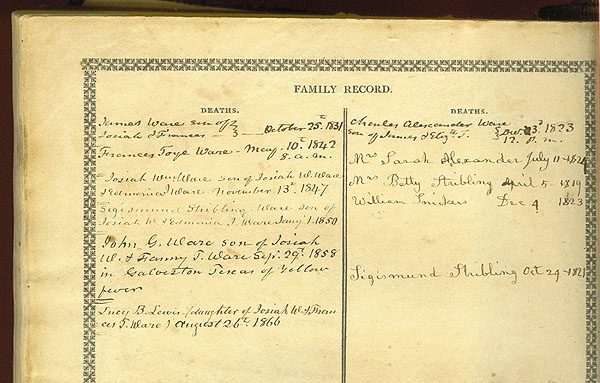 FAMILY RECORD.
DEATHS.
James Ware son of
Josiah & Frances October 25th 1831
Frances Toye Ware - May 10th 1842
8. a. m.
Josiah Ware son of Josiah W. Ware
& Edmonia J Ware November 13th 1847
Sigismund Stribling Ware son of
Josiah W & Edmonia J. Ware Jany 1-1850
John G. Ware son of Josiah
W. & Fanny T. Ware Sept. 29th 1858
in Galveston Texas of Yellow
fever
Lucy B. Lewis (daughter of Josiah W & Fran
ces T. Ware) August 26th 1866
DEATHS.
Charles Alexander Ware
son of James & Eliz. T. 3d 1823
12. P. m.
Mrs Sarah Alexander July 11
Mrs Betty Stribling April 5 - 1819
William Snickers Dec 4 1823
Sigismund Stribling Oct 29